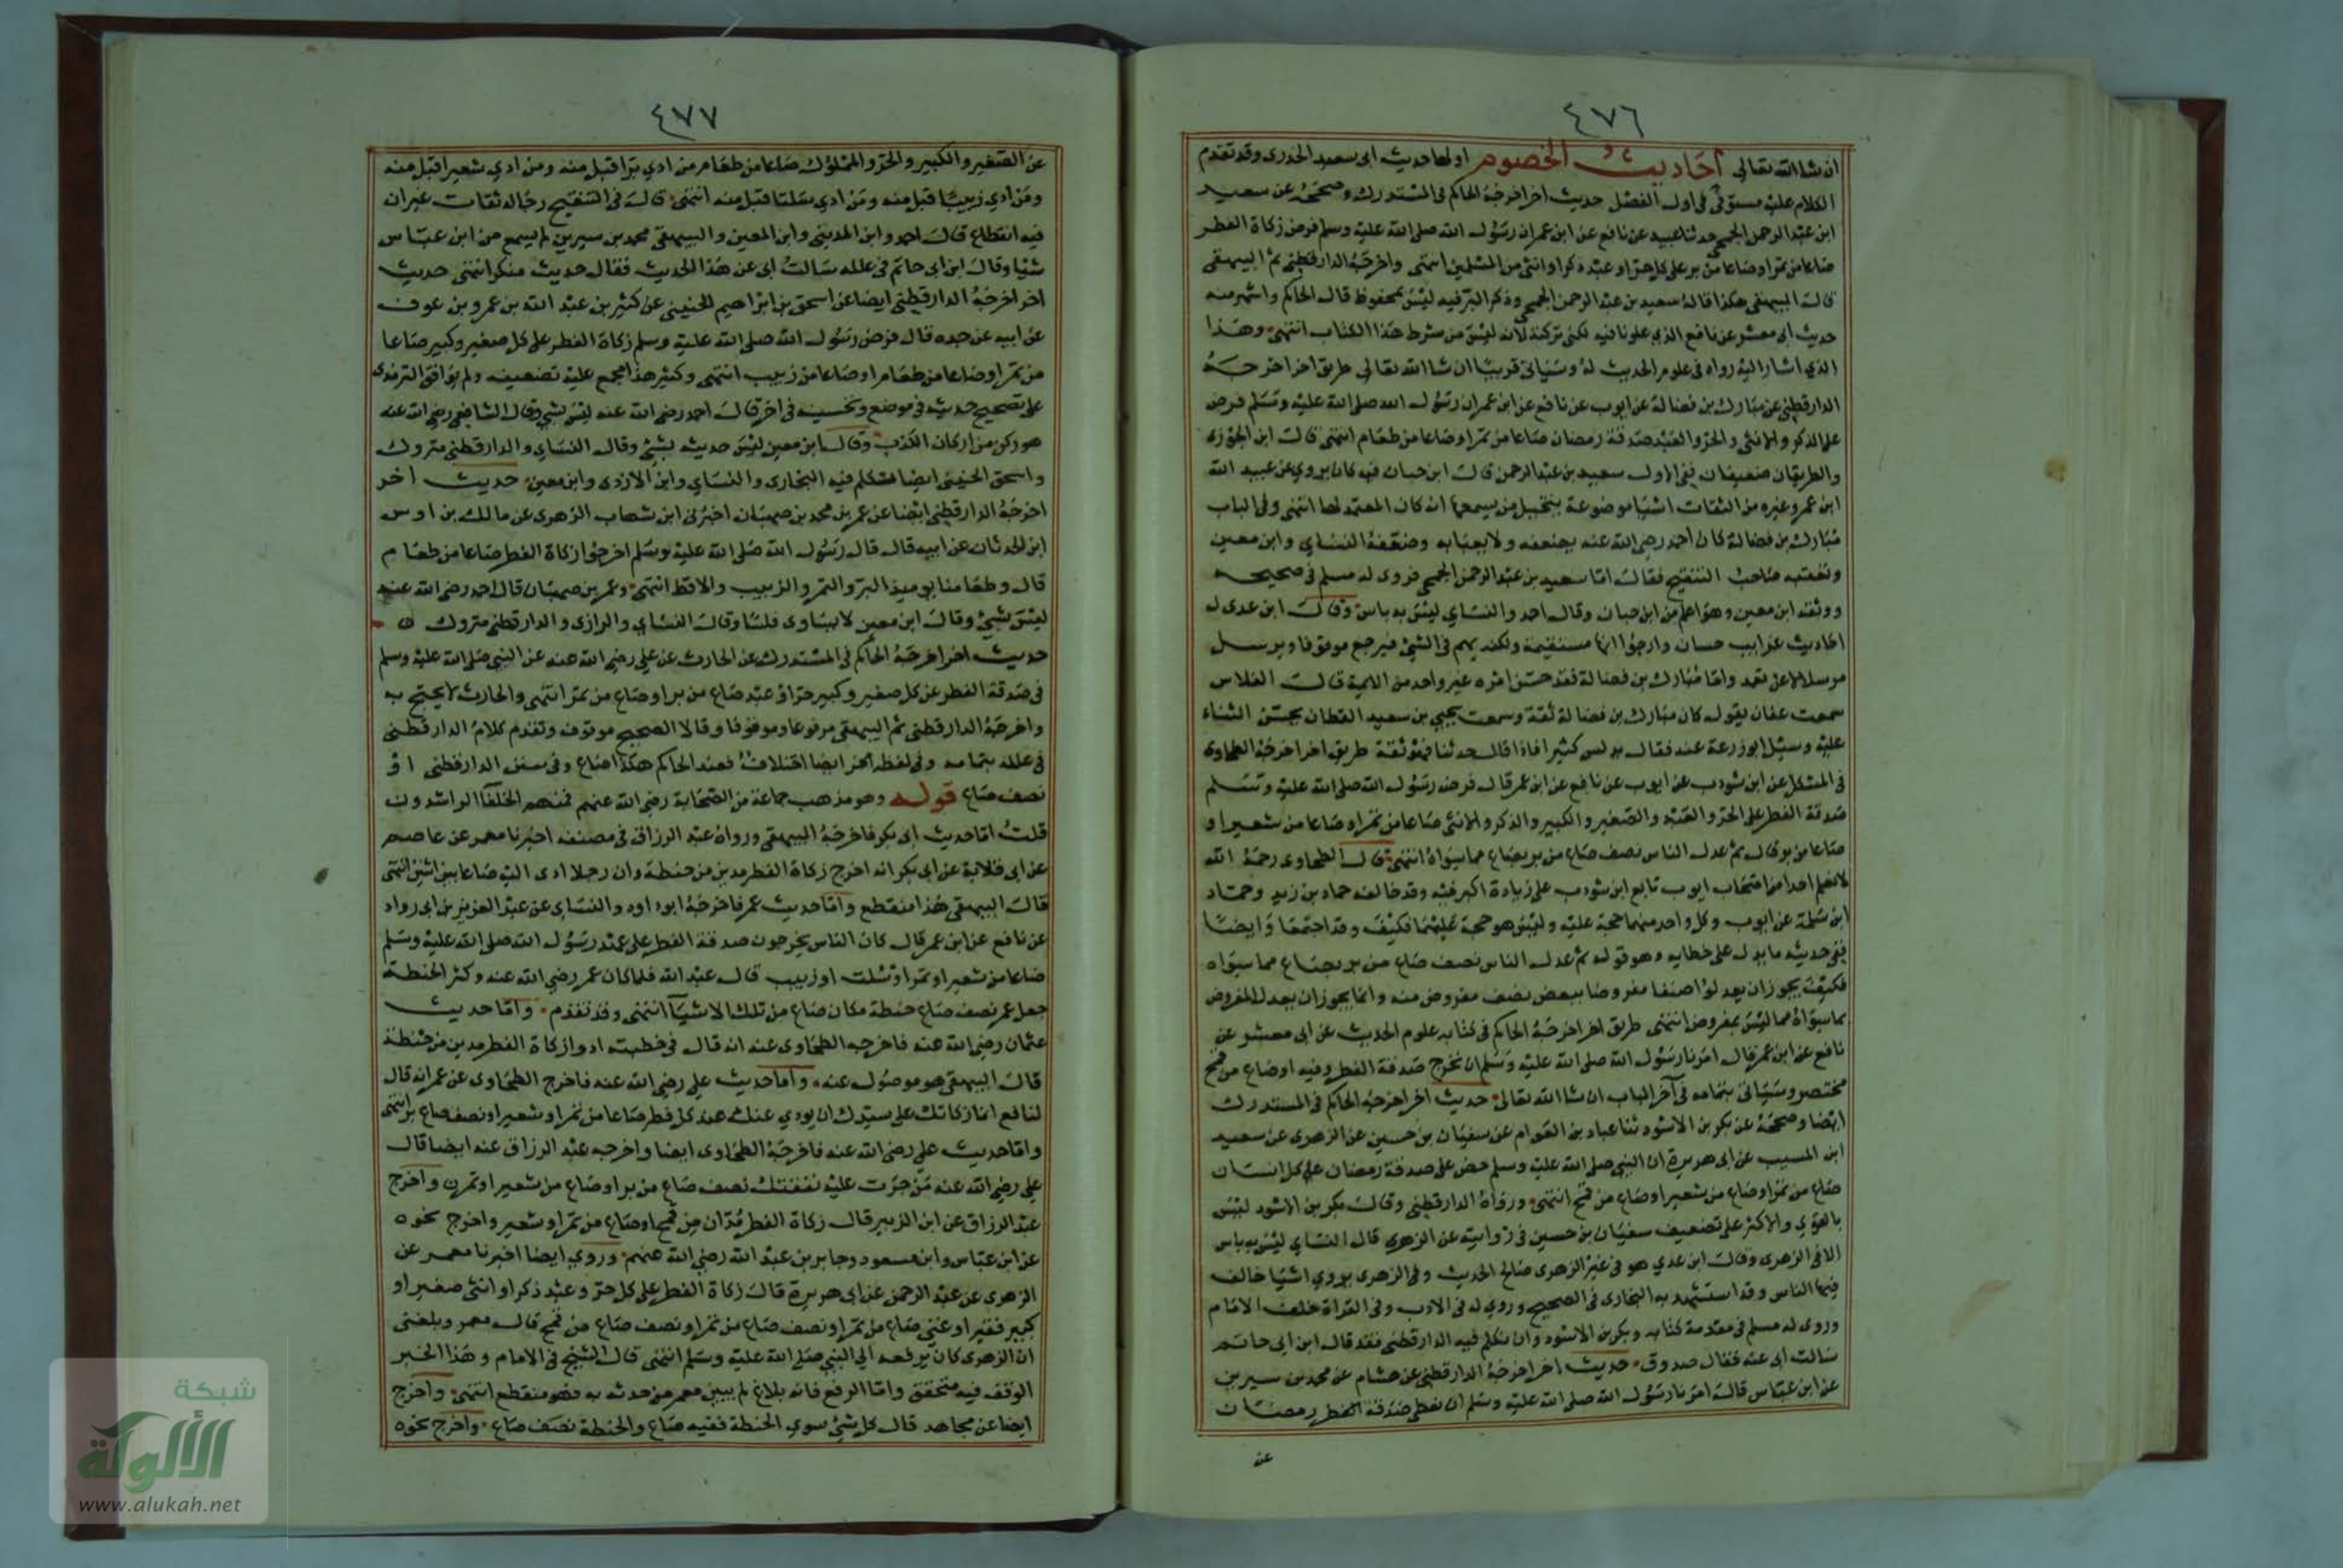 ٤٧٦
ان شا الله تعالى احاديث الخصوم اولها حديث ابى سعيد الخدرى وقد تقدم
الكلام عليه مستوفى فى اول الفصل حديث اخر اخرجه الحاكم فى المستدرك وصححه عن سعيد
ابن عبد الرحمن الجمحى حدثنا عبيد عن نافع عن ابن عمر ان رسول الله صلى الله عليه وسلم فرض زكاة الفطر
صاعا من تمر او صاعا من بر على كل حر او عبد ذكر او انثى من المسلمين انتهى واخرجه الدارقطنى ثم البيهقى
قال البيهقى هكذا قاله سعيد بن عبد الرحمن الجمحى وذكر البر فيه ليس بمحفوظ قال الحاكم واشهر منه
حديث ابى معشر عن نافع الذي علونا فيه لكنى تركته لانه ليس من شرط هذا الكتاب انتهى وهذا
الذي اشار اليه رواه فى علوم الحديث له وسياتى قريبا ان شا الله تعالى طريق اخر اخرجه
الدارقطنى عن مبارك بن فضالة عن ايوب عن نافع عن ابن عمر ان رسول الله صلى الله عليه وسلم فرض
على الذكر والانثى والحر والعبد صدقة رمضان صاعا من تمر او صاعا من طعام انتهى قال ابن الجوزى
والطريقان ضعيفان ففى الاول سعيد بن عبد الرحمن قال ابن حبان فيه كان يروي عن عبيد الله
ابن عمر وغيره من الثقات اشيا موضوعة يتخيل من يسمعها انه كان المعتمد لها انتهى وفى الباب
مبارك بن فضالة كان احمد رضى الله عنه يضعفه ولا يعبا به وضعفه النساي وابن معين
وتعقبه صاحب التنقيح فقال اما سعيد بن عبد الرحمن الجمحى فروى له مسلم فى صحيحه
ووثقه ابن معين وهو اعلم من ابن حبان وقال احمد والنساي ليس به باس وقال ابن عدى له
احاديث غرايب حسان وارجوا انها مستقيمة ولكنه يهم فى الشئ فيرفع موقوفا ويرسل
مرسلا لا عن تعمد واما مبارك بن فضالة فقد حسن امره غير واحد من الايمة قال الفلاس
سمعت عفان يقول كان مبارك بن فضالة ثقة وسمعت يحيى بن سعيد القطان يحسن الثناء
عليه وسيل ابو زرعة عنه فقال يدلس كثيرا فاذا قال حدثنا فهو ثقة طريق اخر اخرجه الطحاوى
فى المشكل عن ابن شوذب عن ايوب عن نافع عن ابن عمر قال فرض رسول الله صلى الله عليه وسلم
صدقة الفطر على الحر والعبد والصغير والكبير والذكر والانثى صاعا من تمر او صاعا من شعير او
صاعا من بر قال ثم عدل الناس نصف صاع من بر بصاع مما سواه انتهى قال الطحاوى رحمه الله
لا نعلم احدا من اصحاب ايوب تابع ابن شوذب على زيادة البر فيه وقد خالفه حماد بن زيد وحماد
ابن سلمة عن ايوب وكل واحد منهما حجة عليه وليس هو حجة عليهما فكيف وقد اجتمعا وايضا
ففى حديثه ما يدل على خطايه وهو قوله ثم عدل الناس نصف صاع من بر بصاع مما سواه
فكيف يجوز ان يعدلوا صنفا مفروضا ببعض نصف مفروض منه وانما يجوز ان يعدل المفروض
بما سواه مما ليس بمفروض انتهى طريق اخر اخرجه الحاكم فى كتابه علوم الحديث عن ابى معشر عن
نافع عن ابن عمر قال امرنا رسول الله صلى الله عليه وسلم ان نخرج صدقة الفطر وفيه او صاع من قمح
مختصر وسياتى بتمامه فى آخر الباب ان شا الله تعالى حديث اخر اخرجه الحاكم فى المستدرك
ايضا وصححه عن بكر بن الاسود ثنا عباد بن العوام عن سفيان بن حسين عن الزهرى عن سعيد
ابن المسيب عن ابى هريرة ان النبى صلى الله عليه وسلم حض على صدقة رمضان على كل انسان
صاع من تمر او صاع من شعير او صاع من قمح انتهى ورواه الدارقطنى وقال بكر بن الاسود ليس
بالقوي والاكثر على تضعيف سفيان بن حسين فى روايته عن الزهرى قال النساي ليس به باس
الا فى الزهرى وقال ابن عدي هو فى غير الزهرى صالح الحديث وفى الزهرى يروي اشيا خالف
فيها الناس وقد استشهد به البخارى فى الصحيح وروي له فى الادب وفى القراة خلف الامام
وروى له مسلم فى مقدمة كتابه وبكر بن الاسود وان تكلم فيه الدارقطنى فقد قال ابن ابى حاتم
سالت ابى عنه فقال صدوق حديث اخر اخرجه الدارقطنى عن هشام عن محمد بن سيرين
عن ابن عباس قال امرنا رسول الله صلى الله عليه وسلم ان نعطى صدقة الفطر رمضان
عن
٤٧٧
عن الصغير والكبير والحر والمملوك صاعا من طعام من ادي برا قبل منه ومن ادي شعيرا قبل منه
ومن ادي زبيبا قبل منه ومن ادي سلتا قبل منه انتهى قال فى التنقيح رجاله ثقات غير ان
فيه انقطاع قال احمد وابن المدينى وابن المعين والبيهقى محمد بن سيرين لم يسمع من ابن عباس
شيا وقال ابن ابى حاتم فى علله سالت ابى عن هذا الحديث فقال حديث منكر انتهى حديث
اخر اخرجه الدارقطنى ايضا عن اسحق بن ابراهيم الحنينى عن كثير بن عبد الله بن عمرو بن عوف
عن ابيه عن جده قال فرض رسول الله صلى الله عليه وسلم زكاة الفطر على كل صغير وكبير صاعا
من تمر او صاعا من طعام او صاعا من زبيب انتهى وكثير هذا مجمع عليه تضعيفه ولم يوافق الترمذى
على تصحيح حديثه فى موضع وتحسينه فى اخر قال احمد رضى الله عنه ليس بشي وقال الشافعى رضى الله عنه
هو ركن من اركان الكذب وقال ابن معين ليس حديثه بشئ وقال النساي والدارقطنى متروك
واسحق الحنينى ايضا تكلم فيه البخارى والنساي وابن الازدى وابن معين حديث اخر
اخرجه الدارقطنى ايضا عن عمر بن محمد بن صهبان اخبرنى ابن شهاب الزهرى عن مالك بن اوس
ابن الحدثان عن ابيه قال قال رسول الله صلى الله عليه وسلم اخرجوا زكاة الفطر صاعا من طعام
قال وطعامنا يوميذ البر والتمر والزبيب والاقط انتهى وعمر بن صهبان قال احمد رضى الله عنه
ليس بشئ وقال ابن معين لا يساوى فلسا وقال النساي والرازى والدارقطنى متروك
حديث اخر اخرجه الحاكم فى المستدرك عن الحارث عن علي رضى الله عنه عن النبى صلى الله عليه وسلم
فى صدقة الفطر عن كل صغير وكبير حر او عبد صاع من بر او صاع من تمر انتهى والحارث لا يحتج به
واخرجه الدارقطنى ثم البيهقى مرفوعا وموقوفا وقالا الصحيح موقوف وتقدم كلام الدارقطنى
فى علله بتمامه وفى لفظه اخر ايضا اختلاف فعند الحاكم هكذا صاع وفى سنن الدارقطنى او
نصف صاع قوله وهو مذهب جماعة من الصحابة رضى الله عنهم فمنهم الخلفآ الراشدون
قلت اما حديث ابى بكر فاخرجه البيهقى ورواه عبد الرزاق فى مصنفه اخبرنا معمر عن عاصم
عن ابى قلابة عن ابى بكر انه اخرج زكاة الفطر مدين من حنطة وان رجلا ادى اليه صاعا بين اثنين انتهى
قال البيهقى هذا منقطع واما حديث عمر فاخرجه ابو داود والنساى عن عبد العزيز بن ابى رواد
عن نافع عن ابن عمر قال كان الناس يخرجون صدقة الفطر على عهد رسول الله صلى الله عليه وسلم
صاعا من شعير او تمر او سلت او زبيب قال عبد الله فلما كان عمر رضى الله عنه وكثر الحنطة
جعل عمر نصف صاع حنطة مكان صاع من تلك الاشيآ انتهى وقد تقدم واما حديث
عثمان رضى الله عنه فاخرجه الطحاوى عنه انه قال فى خطبته ادوا زكاة الفطر مدين من حنطة
قال البيهقى هو موصول عنه واما حديث علي رضى الله عنه فاخرج الطحاوى عن عمر انه قال
لنافع انما زكاتك على سيدك ان يودي عنك عند كل فطر صاعا من تمر او شعير او نصف صاع بر انتهى
واما حديث علي رضى الله عنه فاخرجه الطحاوى ايضا واخرجه عبد الرزاق عنه ايضا قال
علي رضى الله عنه من جرت عليه نفقتك نصف صاع من بر او صاع من شعير او تمر واخرج
عبد الرزاق عن ابن الزبير قال زكاة الفطر مدان من قمح او صاع من تمر او شعير واخرج نحوه
عن ابن عباس وابن مسعود وجابر بن عبد الله رضى الله عنهم وروي ايضا اخبرنا معمر عن
الزهرى عن عبد الرحمن عن ابى هريرة قال زكاة الفطر على كل حر وعبد ذكر او انثى صغير او
كبير فقير او غنى صاع من تمر او نصف صاع من قمح قال معمر وبلغنى
ان الزهرى كان يرفعه الى النبى صلى الله عليه وسلم انتهى قال الشيخ فى الامام وهذا الخبر
الوقف فيه متحقق واما الرفع فانه بلاغ لم يبين معمر من حدثه به فهو منقطع انتهى واخرج
ايضا عن مجاهد قال كل شئ سوي الحنطة ففيه صاع والحنطة نصف صاع واخرج نحوه
شبكة
الألوكة
www.alukah.net